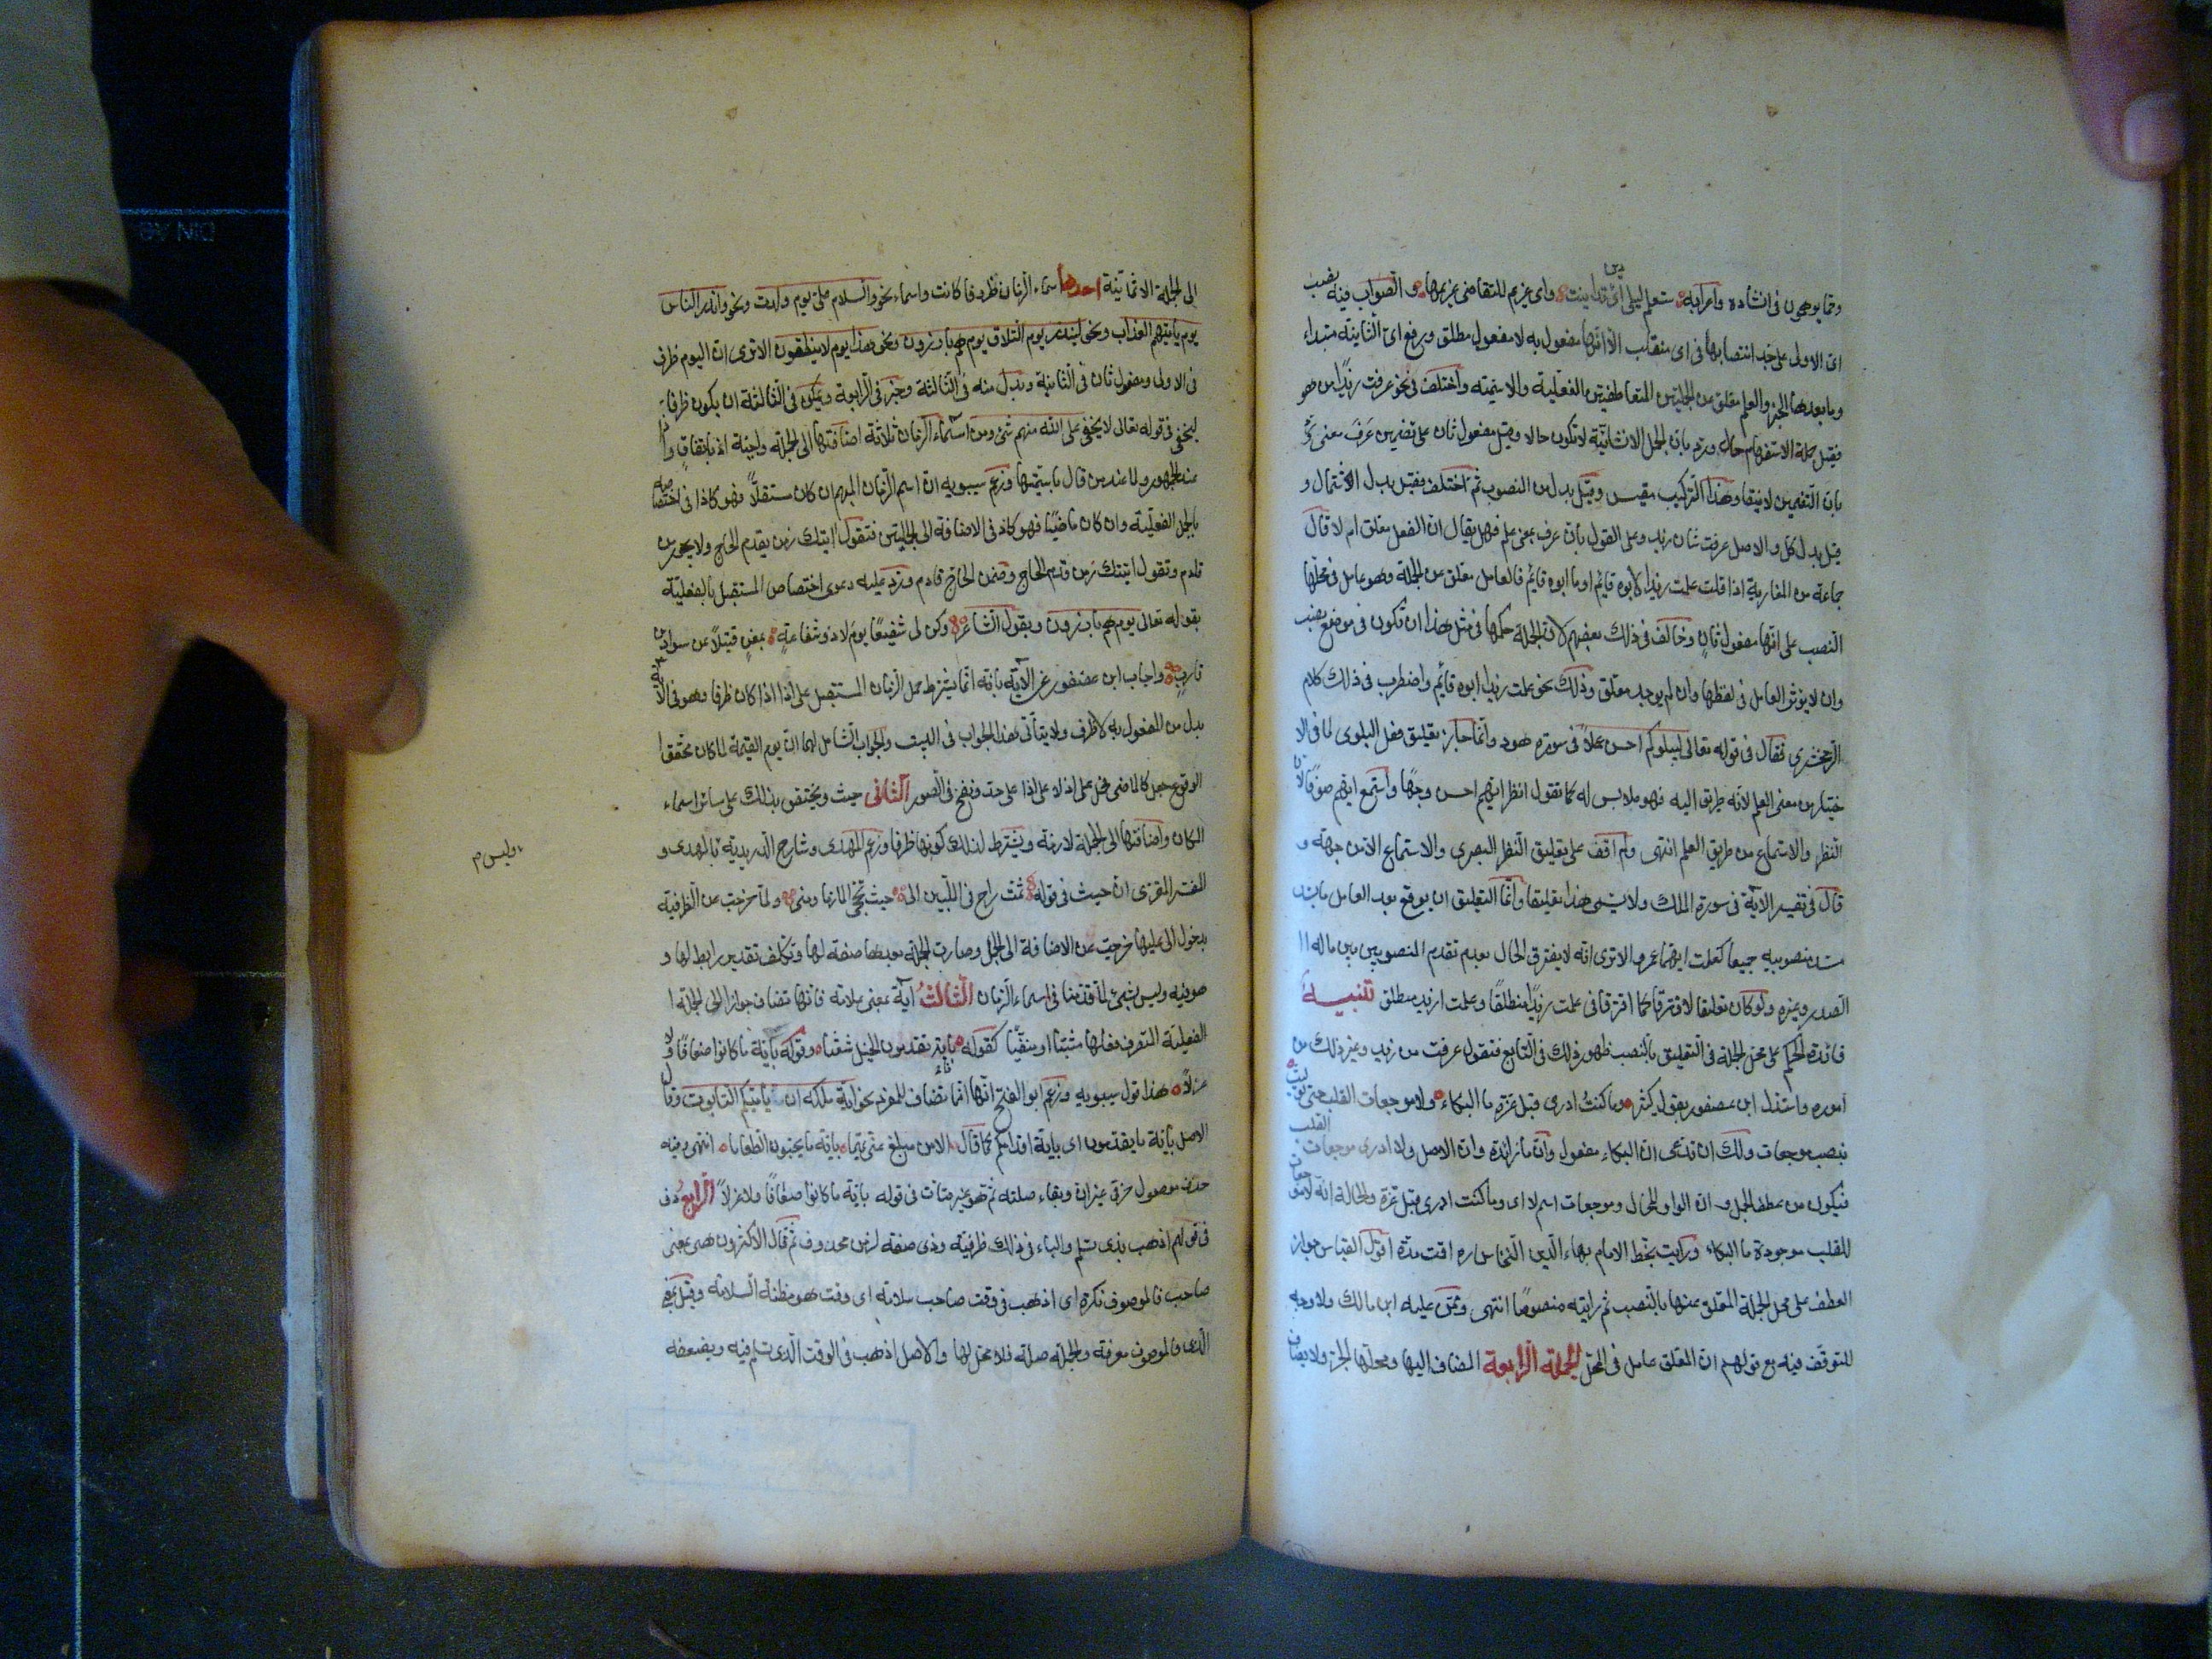 ومما يوهمون في انشاده واعرابه ستعلم ليلى اي دين تداينت واي غريم للتقاضي غريمها و الصواب فيه نصب
اي الاولى على حد انتصابها في اي منقلب الا انها مفعول به لا مفعول مطلق ورفع اي الثانية مبتداء
وما بعدها الخبر والعلم معلق عن الجملتين المتعاطفتين الفعلية والاسمية واختلف في نحو عرفت زيدا من هو
فقيل جملة الاستفهام حال ورد بان الجمل الانشائية لا تكون حالا وقيل مفعول ثان على تضمين عرف معنى
بان التضمين لا ينقاس وهذا التركيب مقيس وقيل بدل من المنصوب ثم اختلف فقيل بدل الاشتمال و
قيل بدل كل و الاصل عرفت شان زيد وعلى القول بان عرف بمعنى علم فهل يقال ان الفعل معلق ام لا قال
جماعة من المغاربة اذا قلت علمت زيدا لابوه قايم او ما ابوه قايم فالعامل معلق عن الجملة وهو عامل في محلها
النصب على انها مفعول ثان وخالف في ذلك بعضهم لان الجملة حكمها في مثل هذا ان تكون في موضع نصب
وان لا يوثر العامل في لفظها وان لم يوجد معلق وذلك نحو علمت زيدا ابوه قايم واضطرب في ذلك كلام
الزمخشري فقال في قوله تعالى ليبلوكم احسن عملا في سورة هود وانما جاز تعليق فعل البلوى لما في الا
ختبار من معنى العلم لانه طريق اليه فهو ملابس له كما تقول انظر ايهم احسن وجها واستمع ايهم صوتا لان
النظر والاستماع من طريق العلم انتهى ولم اقف على تعليق النظر البصري والاستماع الا من جهته و
قال في تفسير الاية في سورة الملك ولا يسمى هذا تعليقا وانما التعليق ان يوقع بعد العامل ما يسد
مسد منصوبيه جميعا كعلمت ايهما عمرو الا ترى انه لا يفترق الحال بعدم تقدم المنصوبين بين ما له ا
الصدر وغيره ولو كان تعليقا لافترقا كما افترقا في علمت زيدا منطلقا وعلمت ازيد منطلق تنبيه
فائدة الحكم على محل الجملة في التعليق بالنصب ظهور ذلك في التابع فتقول عرفت من زيد وغير ذلك من
اموره واستدل ابن عصفور بقول كثير وما كنت ادري قبل عزة ما البكاء ولا موجعات القلب حتى تولت
بنصب موجعات ولك ان تدعي ان البكاء مفعول وان ما زائدة وان الاصل ولا ادري موجعات القلب
فيكون من عطف الجمل و ان الواو للحال وموجعات اسم لا اي وما كنت ادري قبل عزة والحالة انه لا موجعات
للقلب موجودة ما البكاء ورايت بخط الامام بهاء الدين النحاس ره اقمت مدة اقول القياس جواز
العطف على محل الجملة المعلق عنها بالنصب ثم رايته منصوصا انتهى وممن عليه ابن مالك ولا وجه
للتوقف فيه مع قولهم ان المعلق عامل في المحل الجملة الرابعة المضاف اليها ومحلها الجر ولا يضاف
الى الجملة الا ثمانية احدها اسماء الزمان ظروفا كانت واسماء نحو والسلام على يوم ولدت ونحو وانذر الناس
يوم ياتيهم العذاب ونحو لينذر يوم التلاق يوم هم بارزون ونحو هذا يوم لا ينطقون الا ترى ان اليوم ظرف
في الاولى ومفعول ثان في الثانية وبدل منه في الثالثة وخبر في الرابعة ويمكن في الثالثة ان يكون ظرفا
ليخفى في قوله تعالى لا يخفى على الله منهم شئ ومن اسماء الزمان ثلاثة اضافتها الى الجملة واجبة اذ باتفاق واذا
عند الجمهور ولما عند من قال باسميتها وزعم سيبويه ان اسم الزمان المبهم ان كان مستقبلا فهو كاذا في اختصاصه
بالجمل الفعلية وان كان ماضيا فهو كاذ في الاضافة الى الجملتين فتقول اتيتك زمن يقدم الحاج ولا يجوز زمن
قادم وتقول اتيتك زمن قدم الحاج وزمن الحاج قادم ورد عليه دعوى اختصاص المستقبل بالفعلية
بقوله تعالى يوم هم بارزون وبقول الشاعر وكن لي شفيعا يوم لا ذو شفاعة بمغن فتيلا عن سواد بن
قارب واجاب ابن عصفور عن الآية بانه انما يشترط حمل الزمان المستقبل على اذا اذا كان ظرفا وهو في الآية
بدل من المفعول به لا ظرف ولا يتاتى هذا الجواب في البيت والجواب الشامل لهما ان يوم القيمة لما كان محقق ا
الوقوع جعل كالماضي فحمل على اذ لا على اذا على حد ونفخ في الصور الثاني حيث ويختص بذلك على سائر اسماء
المكان واضافتها الى الجملة لازمة ويشترط لذلك كونها ظرفا وزعم المهدي وشارح الدريدية بالمهدي و
وليس م
المفسر المقري ان حيث في قوله ثمت راح في الملبين الى حيث تحجى المازما ومنى ولما خرجت عن الظرفية
بدخول الى عليها خرجت عن الاضافة الى الجمل وصارت الجملة بعدها صفة لها وتكلف تقدير رابط لها و
هو فيه وليس بشئ لما قدمنا في اسماء الزمان الثالث آية بمعنى علامة فانها تضاف جوازا الى الجملة ا
الفعلية المتصرف فعلها مثبتا او منفيا كقوله باية تقدمون الخيل شعثا وقوله باية ما كانوا ضعافا ولا
عزلا هذا قول سيبويه وزعم ابو الفتح انها انما تضاف للمفرد نحو اية ملكه ان ياتيكم التابوت وقال
الاصل باية ما يقدمون اي باية اقدامكم كما قال الا من مبلغ عني تميما باية ما يحبون الطعاما انتهى وفيه
حذف موصول حرفي غير ان وبقاء صلته ثم هو غير متات في قوله باية ما كانوا ضعافا ولا عزلا الرابع ذو
في قولهم اذهب بذي تسلم والباء في ذلك ظرفية وذي صفة لزمن محذوف ثم قال الاكثرون هي بمعنى
صاحب فالموصوف نكرة اي اذهب في وقت صاحب سلامة اي وقت هو مظنة السلامة وقيل بمعنى
الذي فالموصوف معرفة والجملة صلة فلا محل لها والاصل اذهب في الوقت الذي تسلم فيه ويضعفه